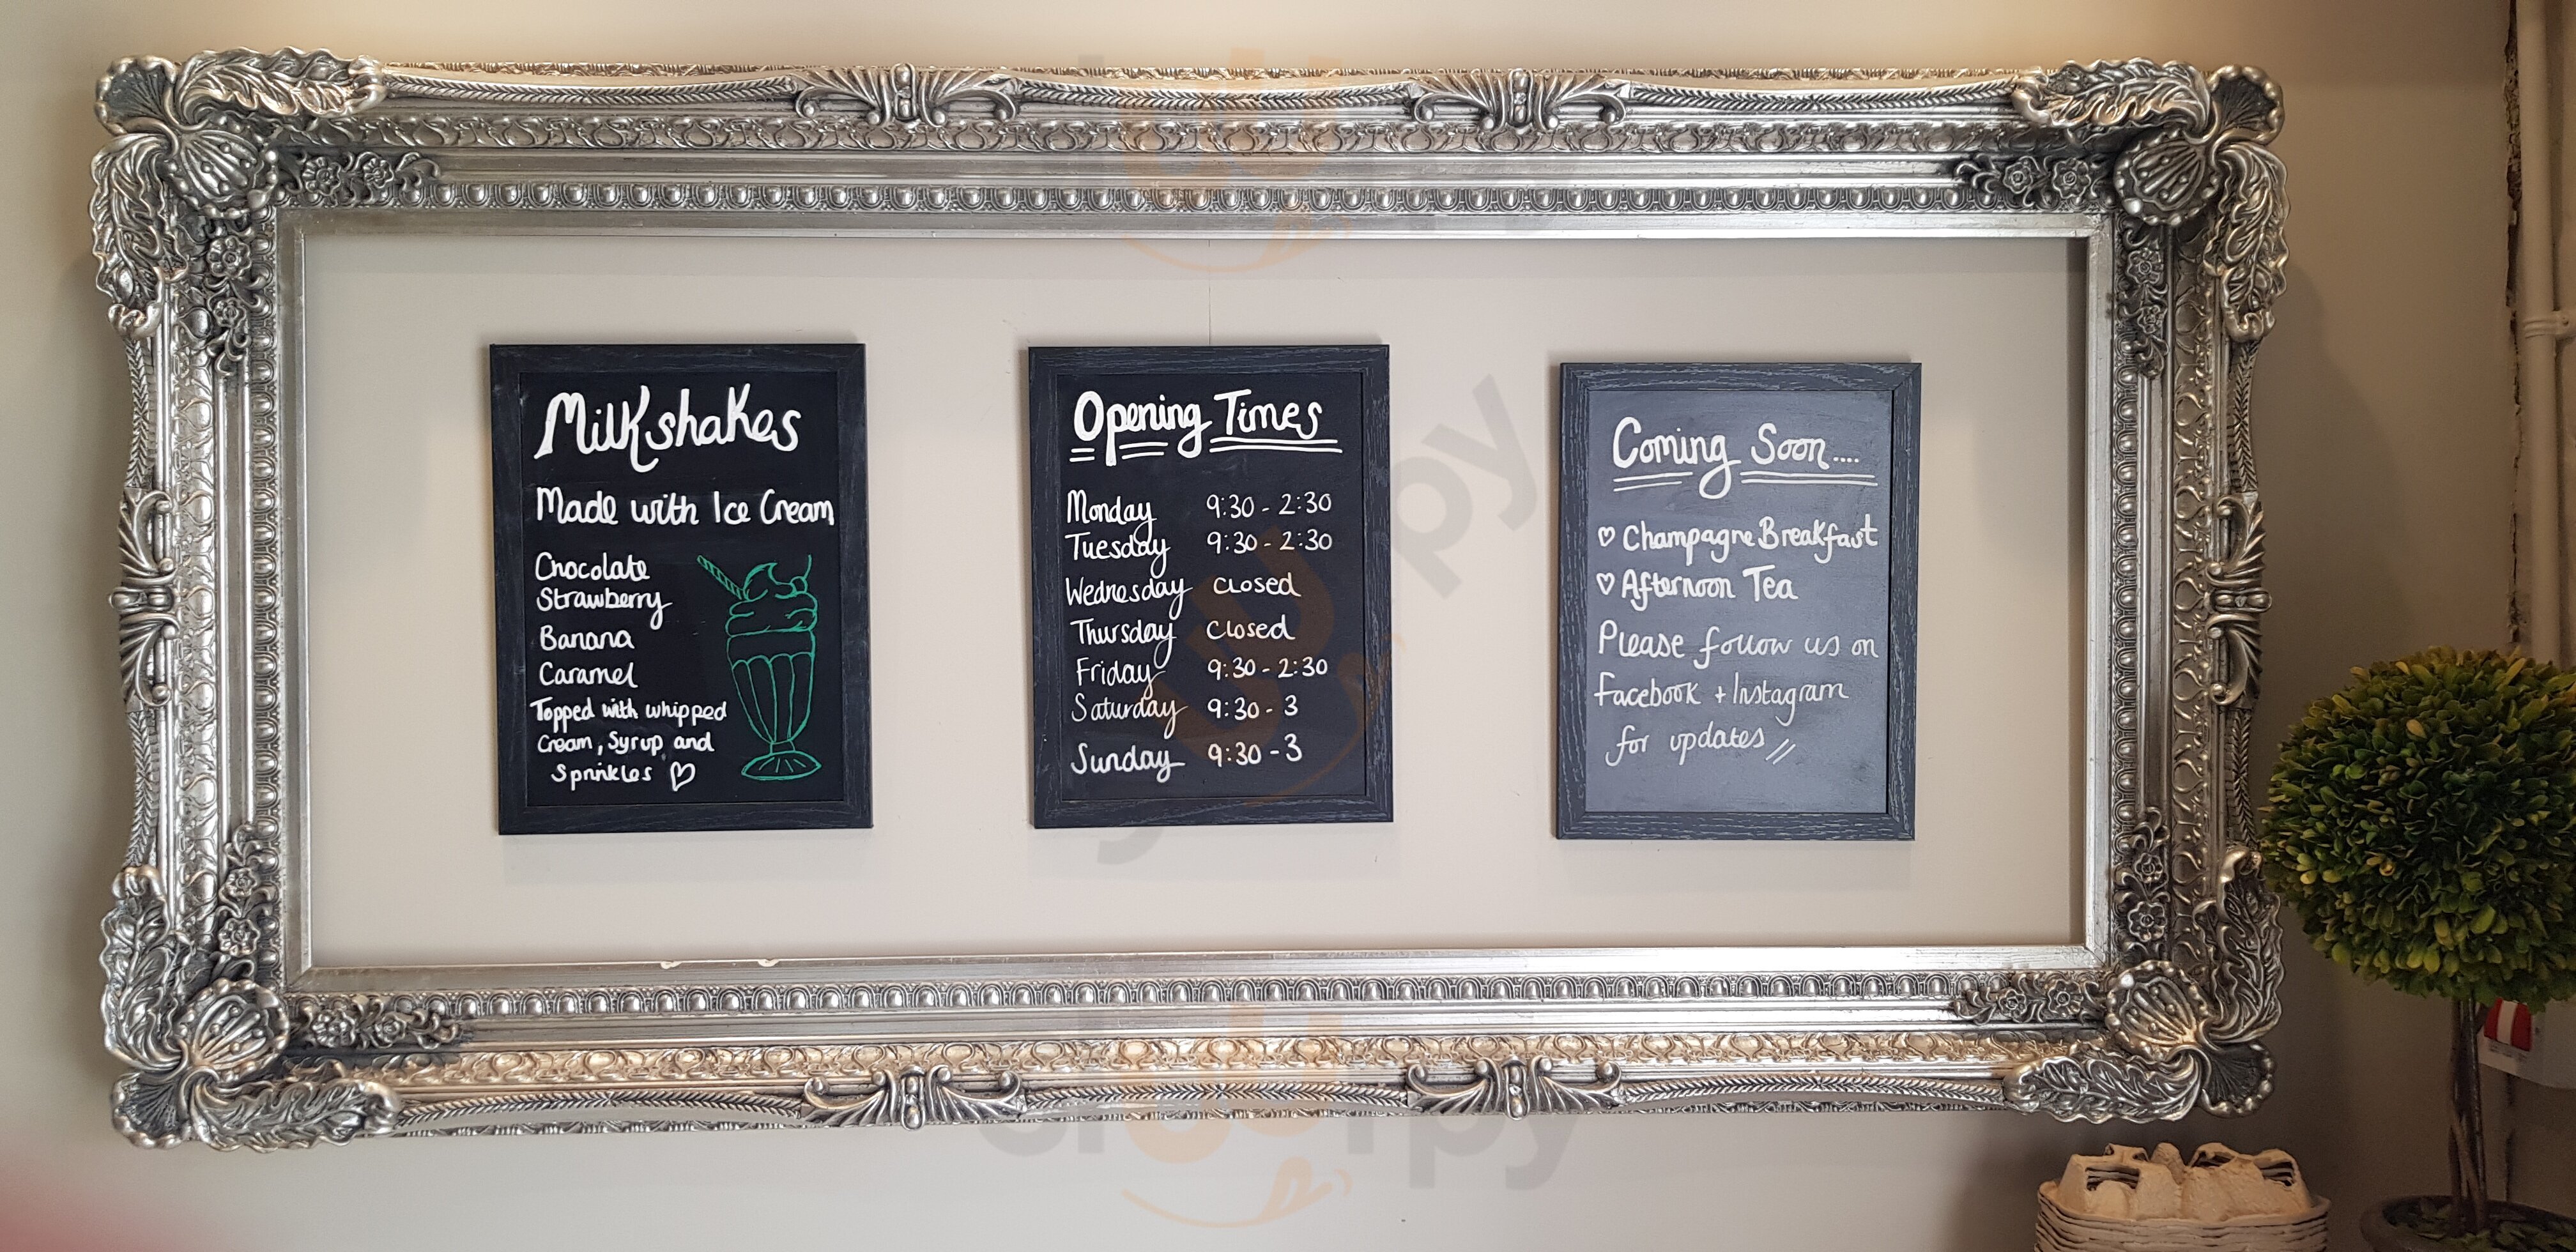 Milkshakes
Made with Ice Cream
Chocolate
Strawberry
Banana
Caramel
Topped with whipped
Cream, Syrup and
Sprinkles ♡
Opening Times
Monday 9:30 - 2:30
Tuesday 9:30 - 2:30
Wednesday CLosed
Thursday Closed
Friday 9:30 - 2:30
Saturday 9:30 - 3
Sunday 9:30 - 3
Coming Soon....
♡ Champagne Breakfast
♡ Afternoon Tea
Please follow us on
Facebook + Instagram
for updates //